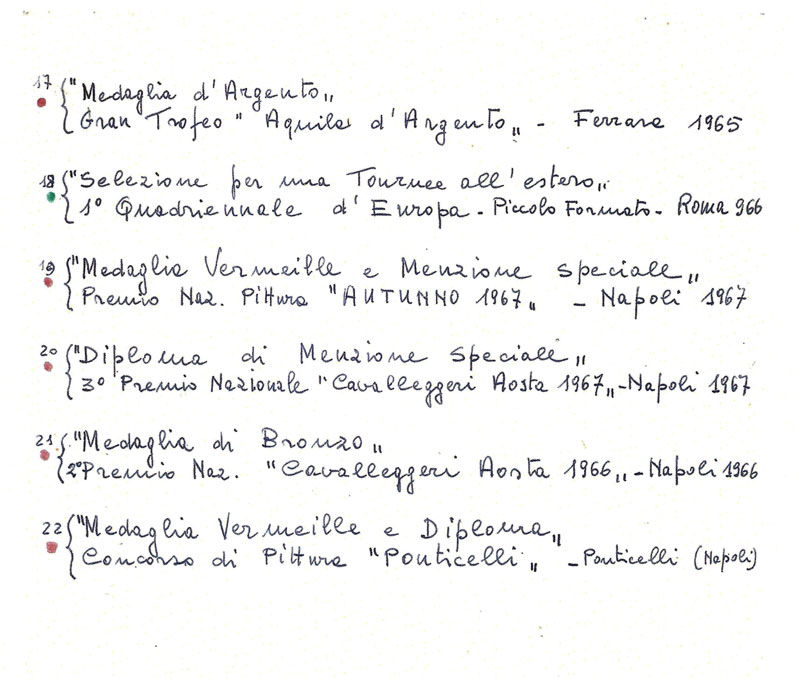 17 "Medaglia d'Argento„
Gran Trofeo "Aquila d'Argento„ - Ferrara 1965
18 "Selezione per una Tournee all'estero„
1° Quadriennale d'Europa - Piccolo Formato - Roma 966
19 "Medaglia Vermeille e Menzione speciale„
Premio Naz. Pittura "AUTUNNO 1967„ - Napoli 1967
20 "Diploma di Menzione Speciale„
3° Premio Nazionale "Cavalleggeri Aosta 1967„ - Napoli 1967
21 "Medaglia di Bronzo„
2° Premio Naz. "Cavalleggeri Aosta 1966„ - Napoli 1966
22 "Medaglia Vermeille e Diploma„
Concorso di Pittura "Ponticelli„ - Ponticelli (Napoli)